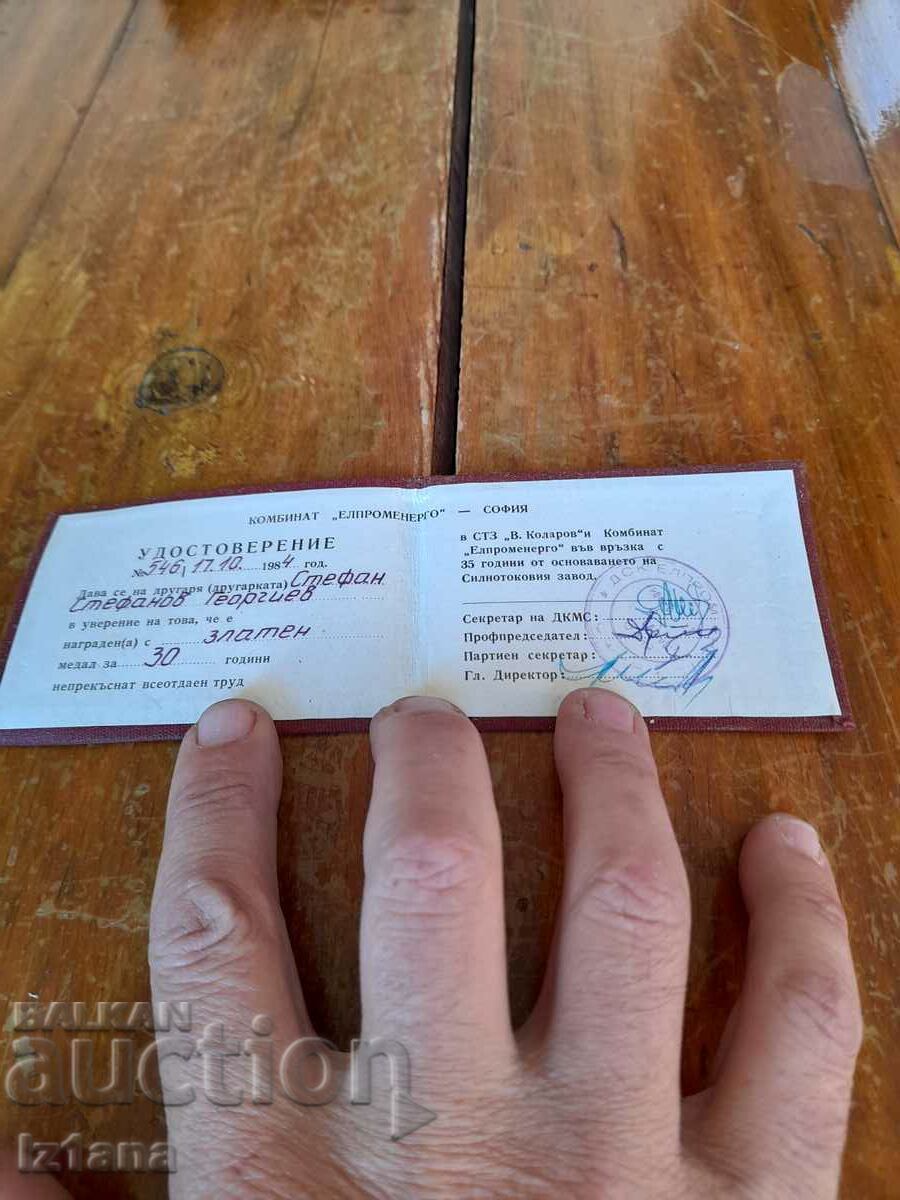 КОМБИНАТ „ЕЛПРОМЕНЕРГО" — СОФИЯ
УДОСТОВЕРЕНИЕ
№ 546, 17.10. 1984 год.
Дава се на другаря (другарката) Стефан
Стефанов Георгиев
в уверение на това, че е
награден(а) с златен
медал за 30 години
непрекъснат всеотдаен труд
в СТЗ „В. Коларов"и Комбинат
„Елпроменерго" във връзка с
35 години от основаването на
Силнотоковия завод.
Секретар на ДКМС:
Профпредседател:
Партиен секретар:
Гл. Директор:
BALKAN
auction
Iz1ana